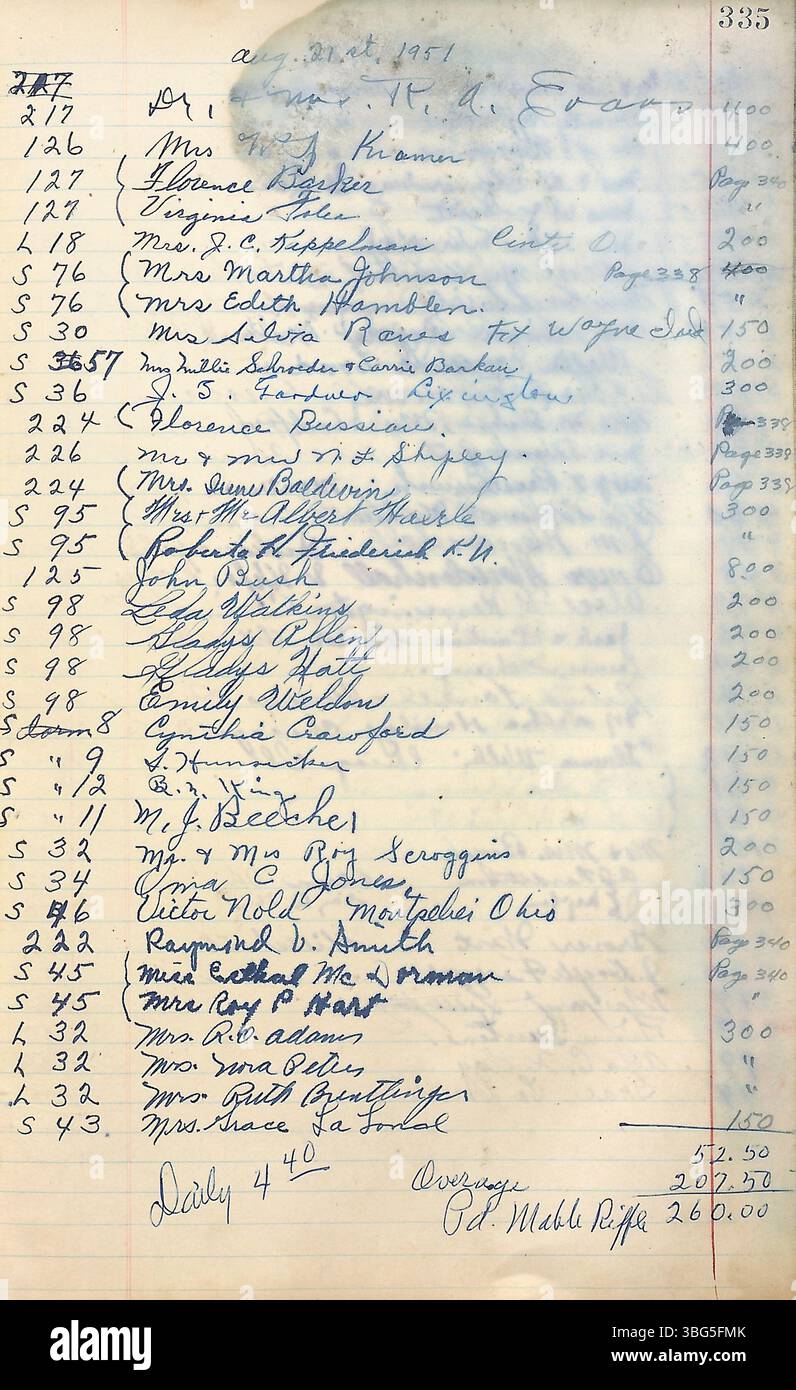 335
Aug. 21st, 1951
217
217 Dr. & Mrs. R. A. Evans 400
126 Mrs Kramer 400
127 Florence Barker Page 340
127 Virginia "
L 18 Mrs. J. C. Kippelman Cinti O. 200
S 76 Mrs Martha Johnson Page 338 400
S 76 Mrs Edith Hamblen. "
S 30 Mrs Silvia Ranes Ft Wayne Ind 150
S 36 57 Mrs Millie Schroeder & Carrie Barkau 200
S 36 J. S. Gardner Lexington 300
224 Florence Bussian. 338
226 Mr & Mrs N F Shipley. Page 338
224 Mrs. Irene Baldwin Page 338
S 95 Mrs + Mr Albert Haerle 300
S 95 Roberta H. Friederich R.N. "
125 John Bush 800
S 98 Leda Watkins 200
S 98 Gladys Allen 200
S 98 Gladys Hatt 200
S 98 Emily Weldon 200
S Dorm 8 Cynthia Crawford 150
S " 9 S. Hunsicker 150
S " 12 B. N. King 150
S " 11 M. J. Beecher 150
S 32 Mr. & Mrs Roy Scroggins 200
S 34 Oma C Jones 150
S 46 Victor Nold Montpelier Ohio 300
222 Raymond V. Smith Page 340
S 45 Miss Ethal Mc Dorman Page 340
S 45 Mrs Roy P Hart "
L 32 Mrs. R. O. Adams 300
L 32 Mrs. Nora Peters "
L 32 Mrs. Ruth Brentlinger "
S 43 Mrs. Grace 150
52.50
Daily 4 40 Overage 207.50
Pd. Mable Riffle 260.00
alamy
alamy
alamy
Image ID: 3BG5FMK
www.alamy.com